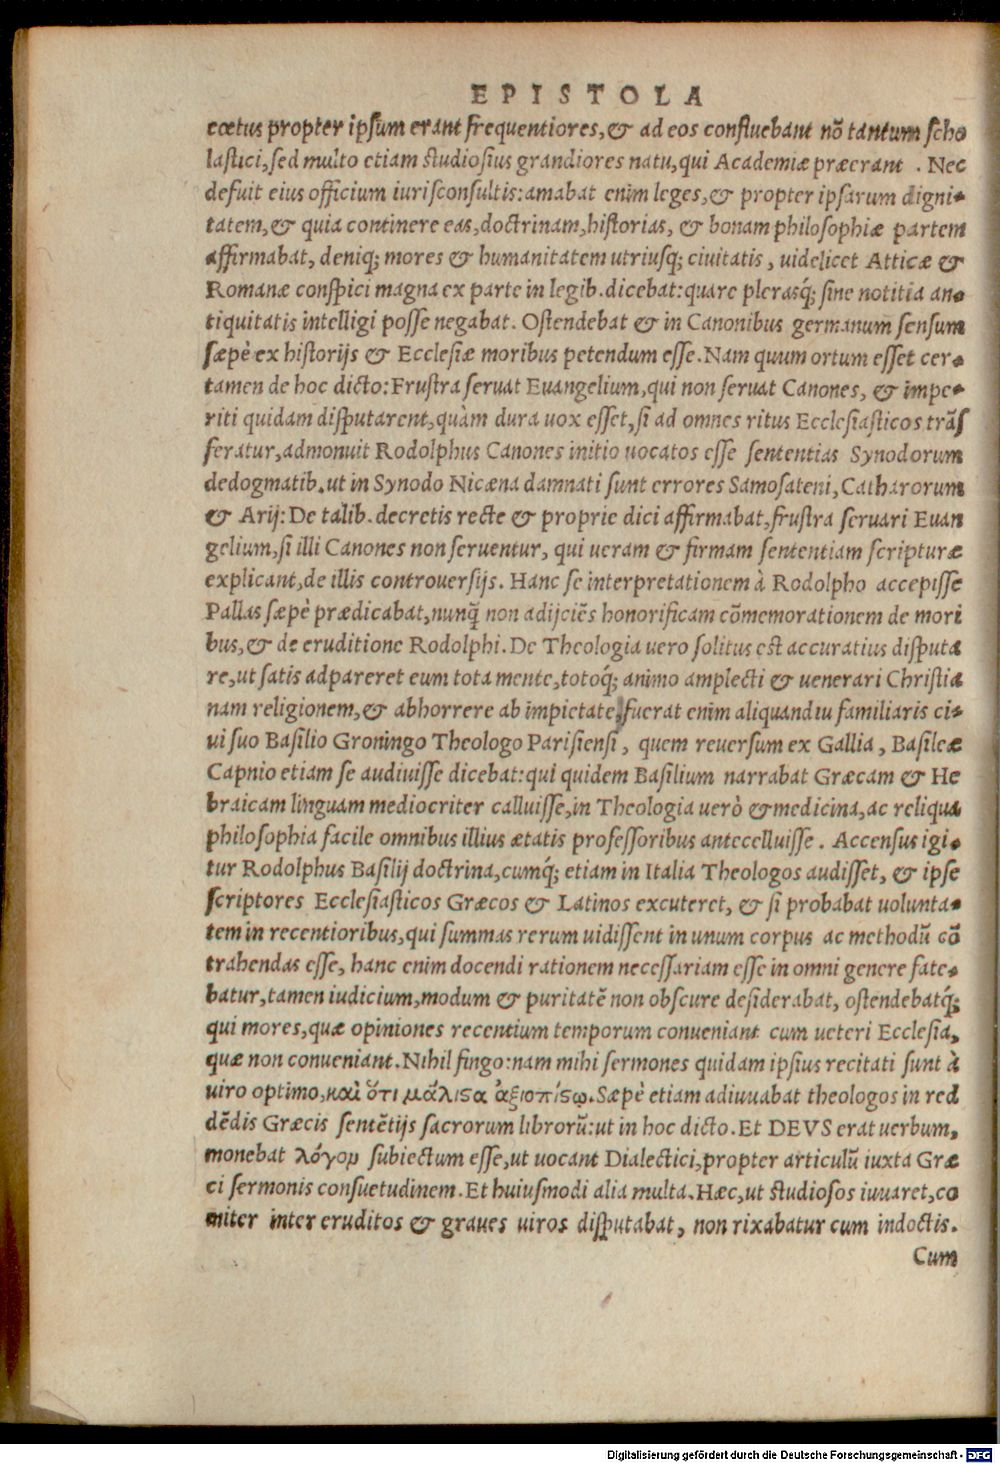 EPISTOLA
cœtus propter ipsum erant frequentiores, & ad eos confluebant nō tantum scho
lastici, sed multo etiam studiosius grandiores natu, qui Academiæ præerant. Nec
defuit eius officium iurisconsultis: amabat enim leges, & propter ipsarum digni-
tatem, & quia continere eas, doctrinam, historias, & bonam philosophiæ partem
affirmabat, deniq; mores & humanitatem utriusq; ciuitatis, uidelicet Atticæ &
Romanæ conspici magna ex parte in legib. dicebat: quare plerasq́; sine notitia an-
tiquitatis intelligi posse negabat. Ostendebat & in Canonibus germanum sensum
sæpè ex historijs & Ecclesiæ moribus petendum esse. Nam quum ortum esset cer-
tamen de hoc dicto: Frustra seruat Euangelium, qui non seruat Canones, & impe-
riti quidam disputarent, quàm dura uox esset, si ad omnes ritus Ecclesiasticos trās
feratur, admonuit Rodolphus Canones initio uocatos esse sententias Synodorum
de dogmatib. ut in Synodo Nicæna damnati sunt errores Samosateni, Catharorum
& Arij: De talib. decretis recte & proprie dici affirmabat, frustra seruari Euan
gelium, si illi Canones non seruentur, qui ueram & firmam sententiam scripturæ
explicant, de illis controuersijs. Hanc se interpretationem à Rodolpho accepisse
Pallas sæpè prædicabat, nunq̄ non adijciēs honorificam cōmemorationem de mori
bus, & de eruditione Rodolphi. De Theologia uero solitus est accuratius disputa
re, ut satis adpareret eum tota mente, totoq́; animo amplecti & uenerari Christia
nam religionem, & abhorrere ab impietate, fuerat enim aliquandiu familiaris ci-
ui suo Basilio Groningo Theologo Parisiensi, quem reuersum ex Gallia, Basileæ
Capnio etiam se audiuisse dicebat: qui quidem Basilium narrabat Græcam & He
braicam linguam mediocriter calluisse, in Theologia uerò & medicina, ac reliqua
philosophia facile omnibus illius ætatis professoribus antecelluisse. Accensus igi-
tur Rodolphus Basilij doctrina, cumq́; etiam in Italia Theologos audisset, & ipse
scriptores Ecclesiasticos Græcos & Latinos excuteret, & si probabat uolunta-
tem in recentioribus, qui summas rerum uidissent in unum corpus ac methodū cō
trahendas esse, hanc enim docendi rationem necessariam esse in omni genere fate-
batur, tamen iudicium, modum & puritatē non obscure desiderabat, ostendebatq́;
qui mores, quæ opiniones recentium temporum conueniant cum ueteri Ecclesia,
quæ non conueniant. Nihil fingo: nam mihi sermones quidam ipsius recitati sunt à
uiro optimo, καὶ ὅτι μάλιϛα ἀξιοπίϛῳ. Sæpè etiam adiuuabat theologos in red
dēdis Græcis sentētijs sacrorum librorū: ut in hoc dicto. Et DEVS erat uerbum,
monebat λόγον subiectum esse, ut uocant Dialectici, propter articulū iuxta Græ
ci sermonis consuetudinem. Et huiusmodi alia multa. Hæc, ut studiosos iuuaret, co
miter inter eruditos & graues uiros disputabat, non rixabatur cum indoctis.
Cum
Digitalisierung gefördert durch die Deutsche Forschungsgemeinschaft - DFG